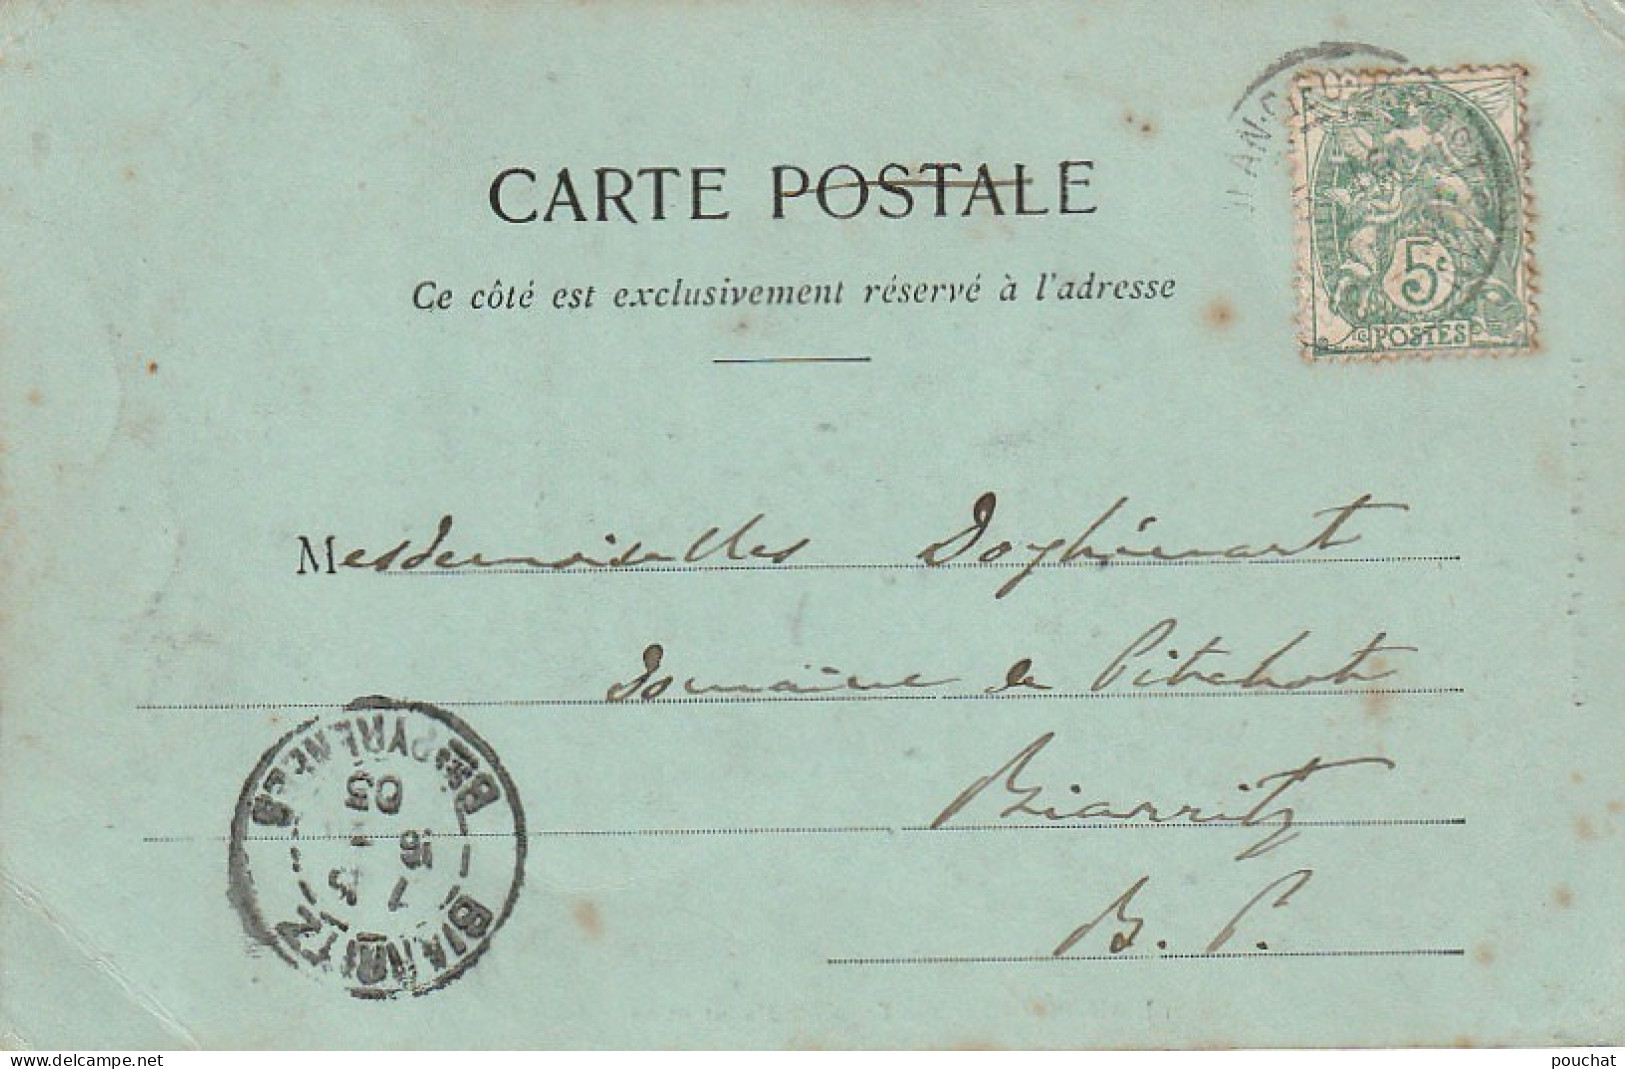 CARTE POSTALE
Ce côté est exclusivement réservé à l'adresse
5c
POSTES
Mesdemoiselles Doyhénart
Domaine de Pitchot
Biarritz
B. P.
BIARRITZ
Bses PYRÉNÉES
16
03
delcampe.net
pouchat